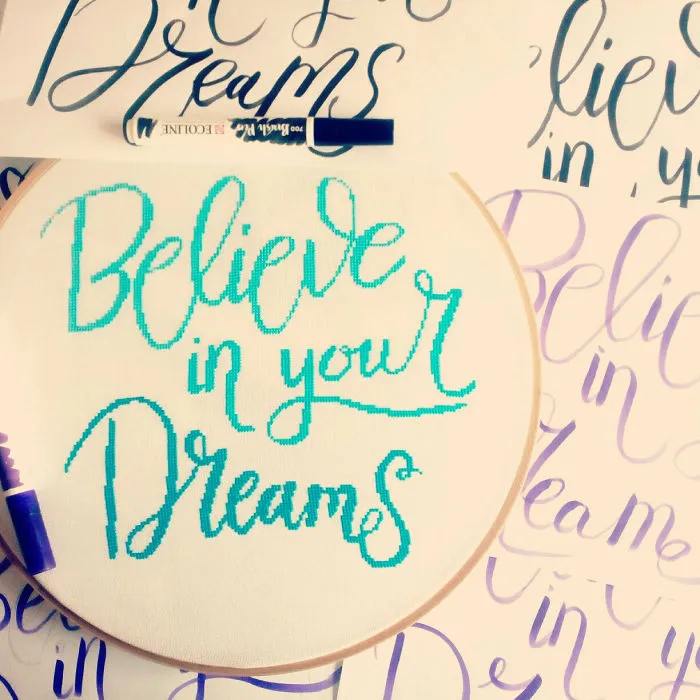 Dreams
ECOLINE Brush Pen 700
liev
in yo
Believe
in your
Dreams
Belie
in
reams
in
in yo
D